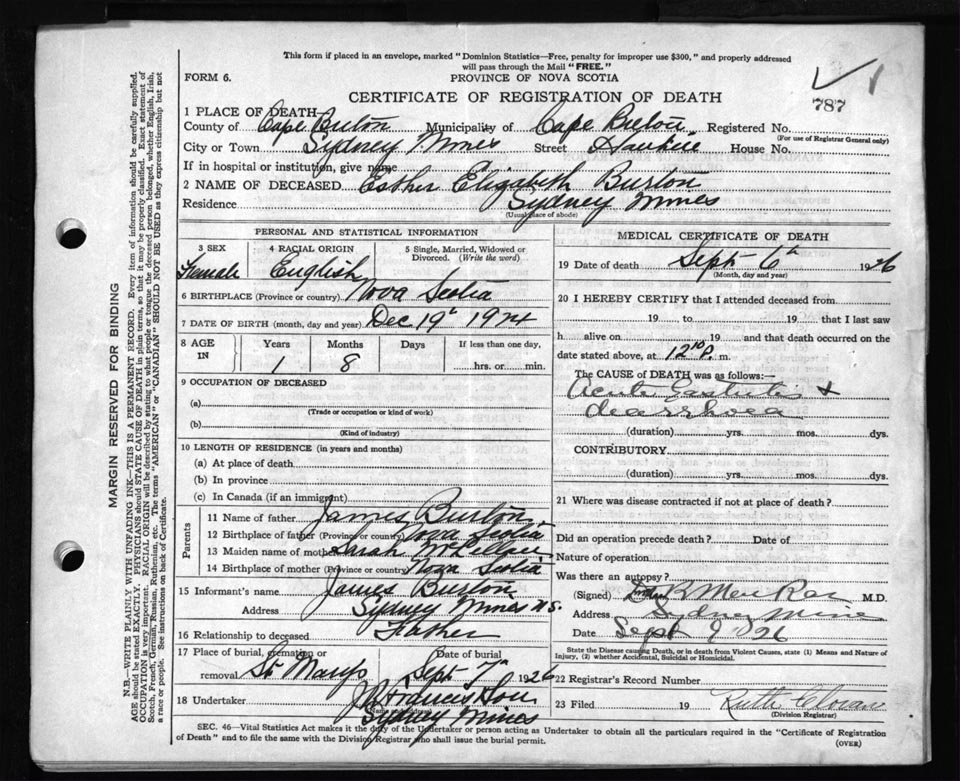 This form if placed in an envelope, marked "Dominion Statistics—Free, penalty for improper use $300," and properly addressed
will pass through the Mail "FREE."
FORM 6.
PROVINCE OF NOVA SCOTIA
787
CERTIFICATE OF REGISTRATION OF DEATH
1 PLACE OF DEATH—
County of Cape Breton Municipality of Cape Breton Registered No.
(For use of Registrar General only)
City or Town Sydney Mines Street House No.
If in hospital or institution, give name
2 NAME OF DECEASED Esther Elizabeth Burton
Residence Sydney Mines
(Usual place of abode)
PERSONAL AND STATISTICAL INFORMATION
3 SEX 4 RACIAL ORIGIN 5 Single, Married, Widowed or
Divorced. (Write the word)
Female English
6 BIRTHPLACE (Province or country) Nova Scotia
7 DATE OF BIRTH (month, day and year) Dec 19th 1924
8 AGE IN Years Months Days If less than one day,
1 8 hrs. or min.
9 OCCUPATION OF DECEASED
(a)
(Trade or occupation or kind of work)
(b)
(Kind of industry)
10 LENGTH OF RESIDENCE (in years and months)
(a) At place of death
(b) In province
(c) In Canada (if an immigrant)
Parents
11 Name of father James Burton
12 Birthplace of father (Province or country) Nova Scotia
13 Maiden name of mother Sarah McLellan
14 Birthplace of mother (Province or country) Nova Scotia
15 Informant's name James Burton
Address Sydney Mines N.S.
16 Relationship to deceased Father
17 Place of burial, cremation or Date of burial
removal St Marys Sept 7th 1926
18 Undertaker
(Name and address)
Sydney Mines
MEDICAL CERTIFICATE OF DEATH
19 Date of death Sept 6th 1926
(Month, day and year)
20 I HEREBY CERTIFY that I attended deceased from
19 to 19 that I last saw
h alive on 19 and that death occurred on the
date stated above, at 12 10 P. m.
The CAUSE OF DEATH was as follows:—
Acute Gastritis &
diarrhoea
(duration) yrs. mos. dys.
CONTRIBUTORY
(duration) yrs. mos. dys.
21 Where was disease contracted if not at place of death?
Did an operation precede death? Date of
Nature of operation
Was there an autopsy?
(Signed) M.D.
Address Sydney Mines
Date Sept 26
State the Disease causing Death, or in death from Violent Causes, state (1) Means and Nature of
Injury, (2) whether Accidental, Suicidal or Homicidal.
22 Registrar's Record Number
23 Filed 19 Ruth
(Division Registrar)
SEC. 46—Vital Statistics Act makes it the duty of the Undertaker or person acting as Undertaker to obtain all the particulars required in the "Certificate of Registration
of Death" and to file the same with the Division Registrar who shall issue the burial permit.
(OVER)
MARGIN RESERVED FOR BINDING
N.B.—WRITE PLAINLY WITH UNFADING INK—THIS IS A PERMANENT RECORD. Every item of information should be carefully supplied.
AGE should be stated EXACTLY. PHYSICIANS should STATE CAUSE OF DEATH in plain terms, so that it may be properly classified. Exact statement of
OCCUPATION is very important. RACIAL ORIGIN will be described by stating to what people or tongue the deceased person belonged, whether English, Irish,
Scotch, French, German, Russian, Ruthenian, etc. The terms "AMERICAN" or "CANADIAN" SHOULD NOT BE USED as they express citizenship but not
a race or people. See instructions on back of Certificate.